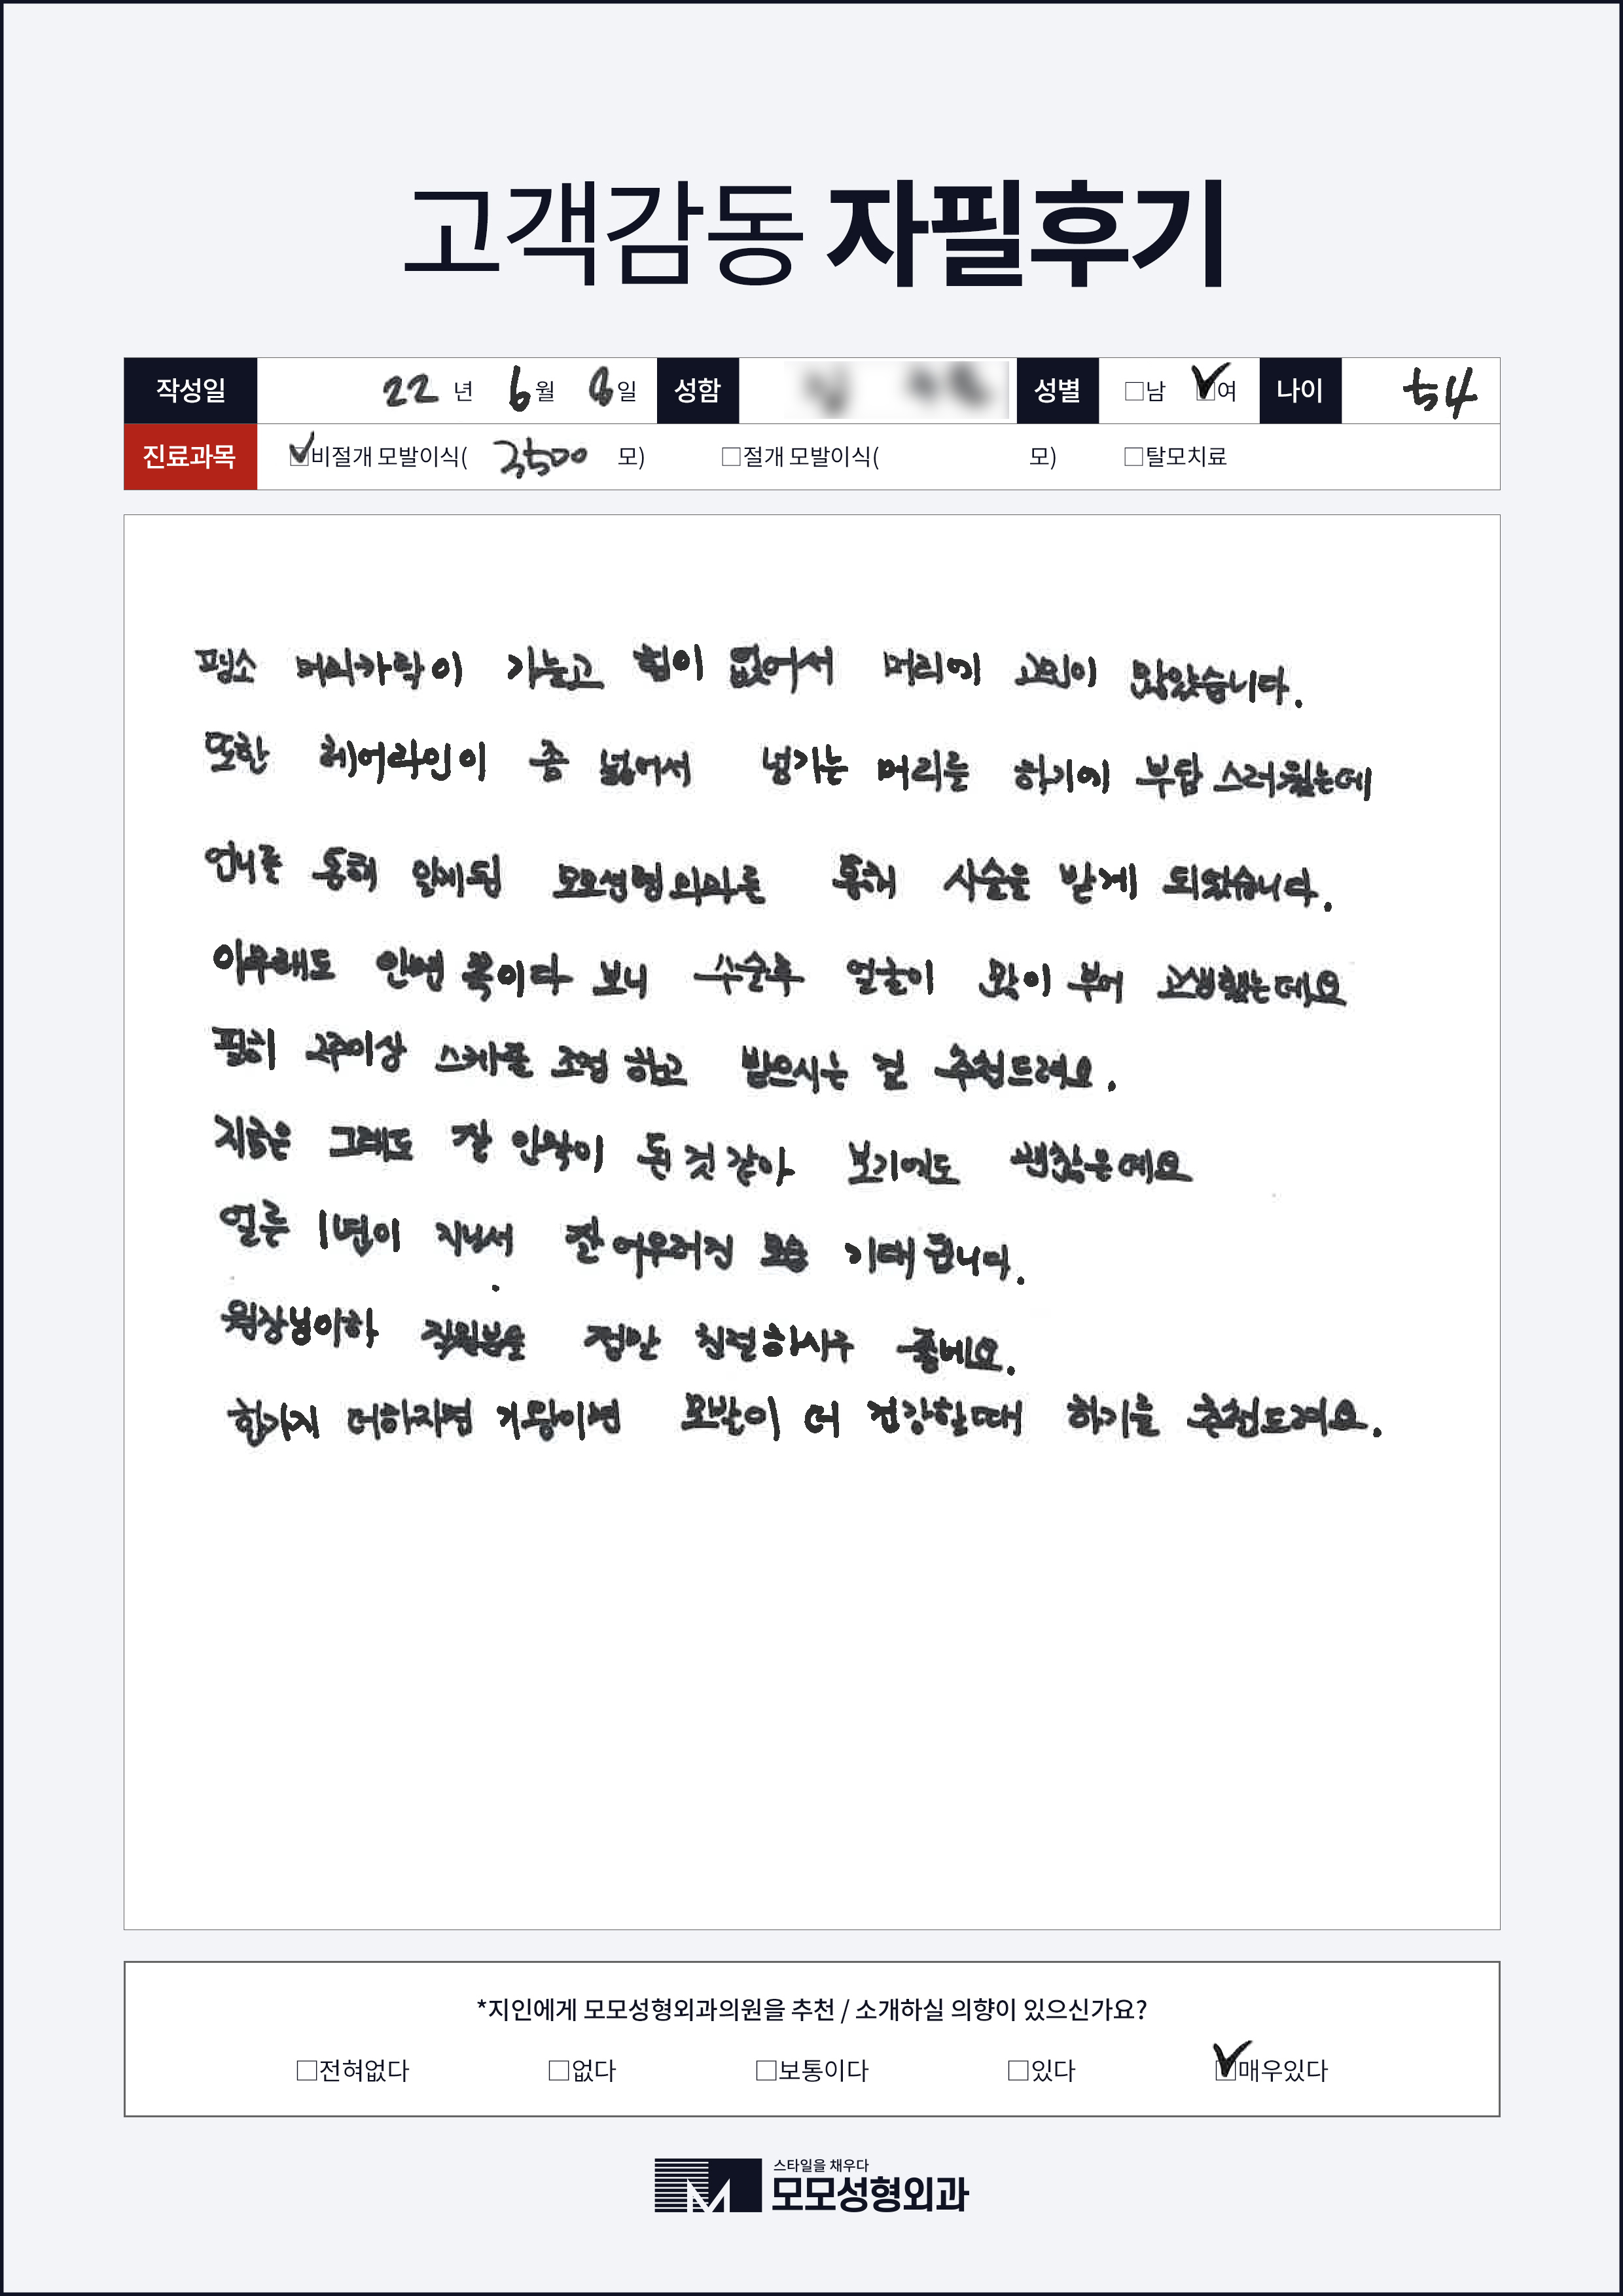 고객감동 자필후기
작성일 22 년 6 월 8 일 성함 성별 □남 ☑여 나이 54
진료과목 ☑비절개 모발이식( 3500 모) □절개 모발이식( 모) □탈모치료
평소 머리카락이 가늘고 힘이 없어서 머리에 고민이 많았습니다.
또한 헤어라인이 좀 넓어서 넘기는 머리를 하기에 부담 스러웠는데
언니를 통해 알게된 모모성형외과를 통해 시술을 받게 되었습니다.
아무래도 안면 쪽이다 보니 수술후 얼굴이 많이 부어 고생했는데요
필히 2주이상 스케쥴 조절 하고 받으시는 걸 추천드려요.
지금은 그래도 잘 안착이 된 것 같아 보기에도 괜찮은예요
얼른 1년이 지나서 잘 어우러진 모습 기대 됩니다.
원장님이하 직원분들 정말 친절하시구 좋네요.
한가지 더하자면 기왕이면 모발이 더 건강할때 하기를 추천드려요.
*지인에게 모모성형외과의원을 추천 / 소개하실 의향이 있으신가요?
□전혀없다 □없다 □보통이다 □있다 ☑매우있다
스타일을 채우다
모모성형외과